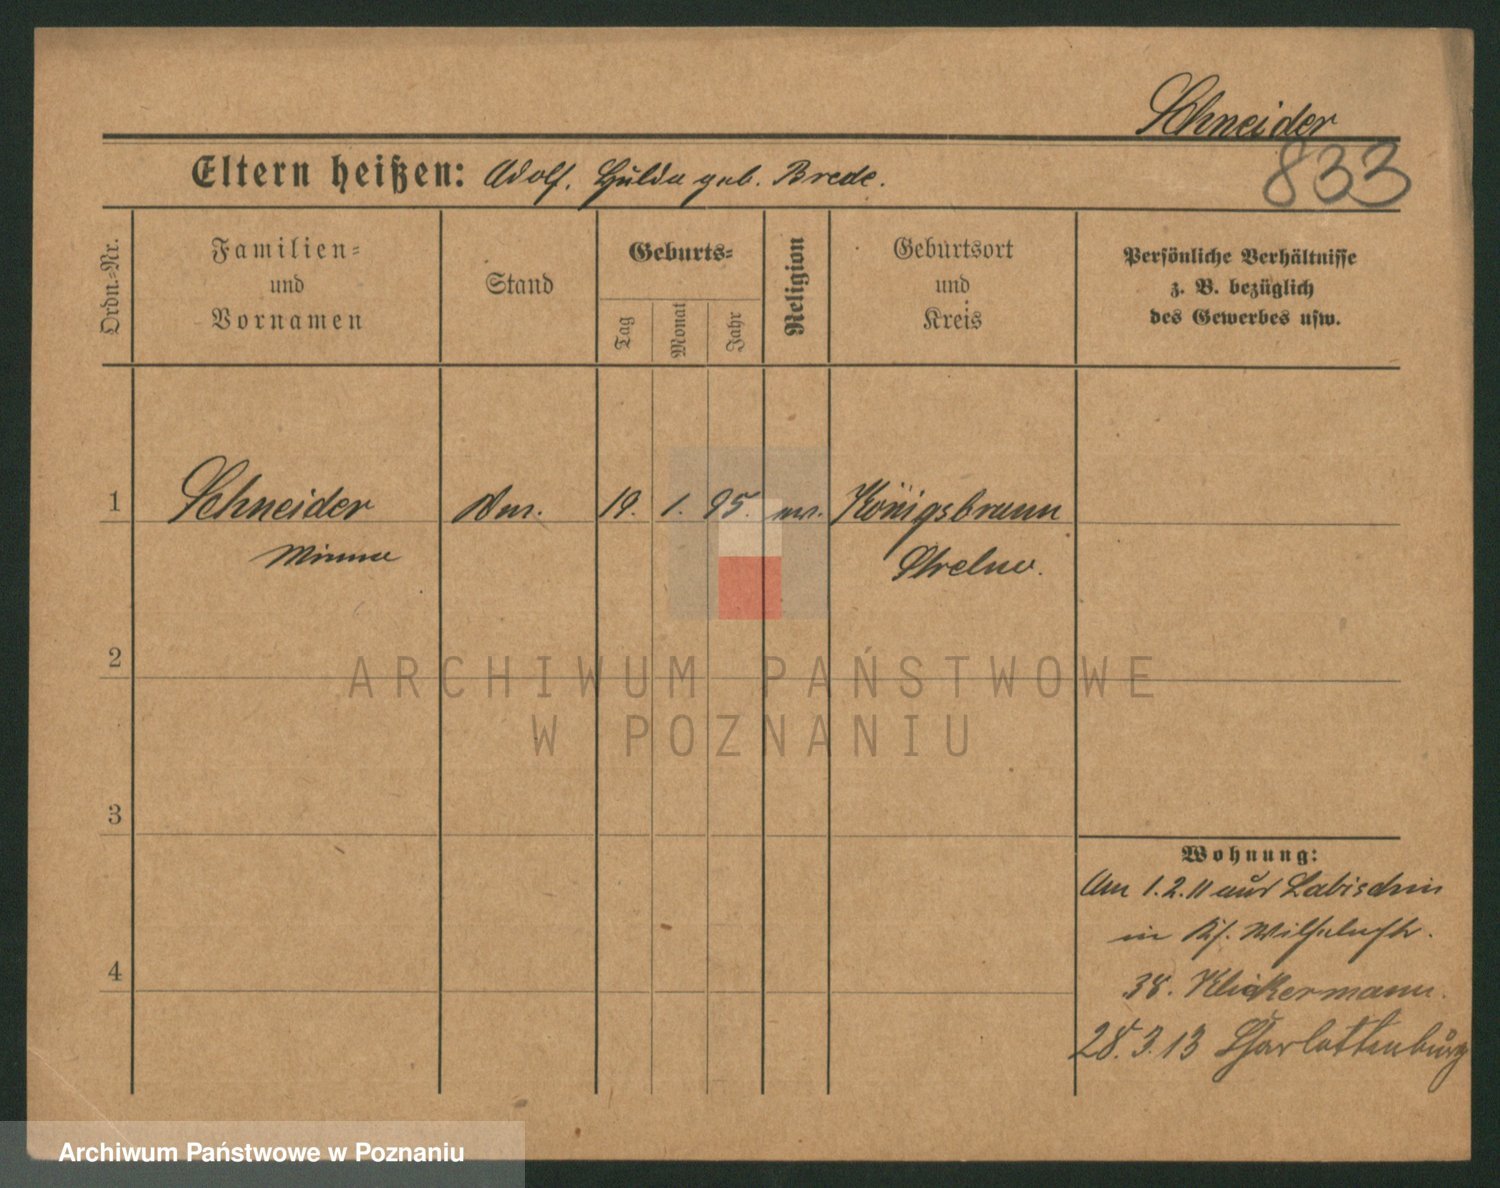 Schneider
833
Eltern heißen: Adolf. Hulda geb. Brede.
Ordn.-Nr.
Familien-
und
Vornamen
Stand
Geburts-
Tag
Monat
Jahr
Religion
Geburtsort
und
Kreis
Persönliche Verhältnisse
z. B. bezüglich
des Gewerbes usw.
1 Schneider 19. 1. 95. Königsbrunn
Minna Strelno.
2
ARCHIWUM PAŃSTWOWE
W POZNANIU
3
Wohnung:
Am 1.2.11 aus Labischin
in
4
38. Klickermann.
28.3.13 Charlottenburg
Archiwum Państwowe w Poznaniu